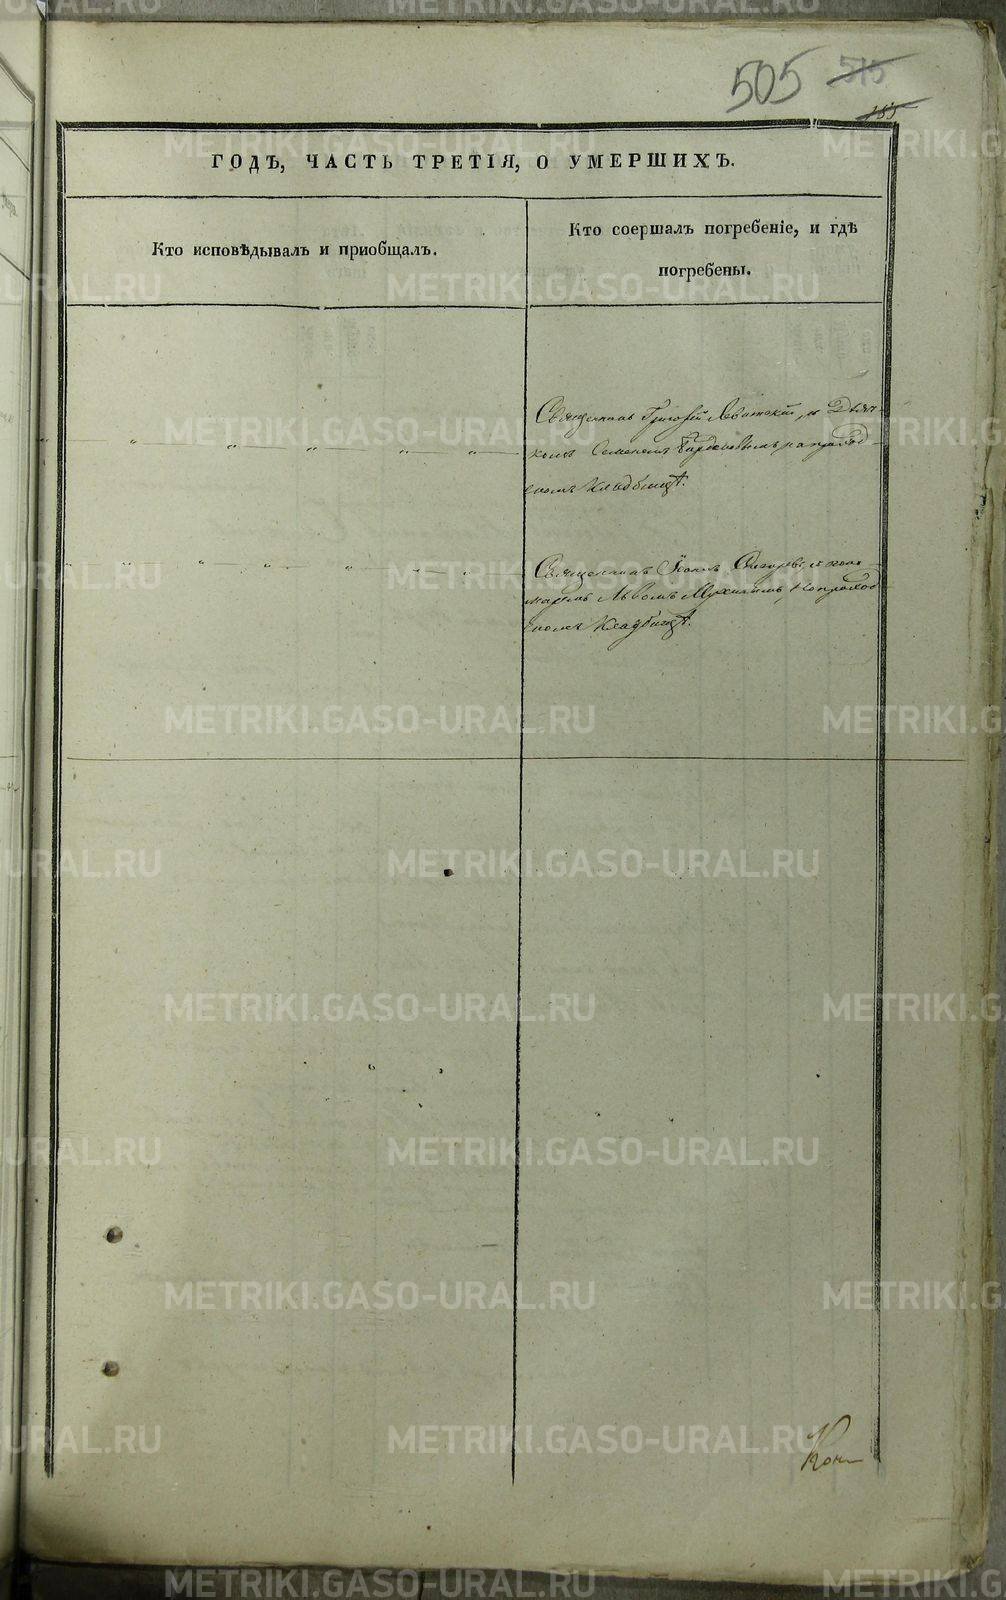 505 515
185
ГОДЪ, ЧАСТЬ ТРЕТІЯ, О УМЕРШИХЪ.
Кто исповѣдывалъ и пріобщалъ.
Кто соершалъ погребеніе, и гдѣ
погребены.
Священникъ Григорій Левитскій, съ Дьяч-
комъ Семеномъ на приход-
скомъ Кладбищѣ.
Священникъ Іоаннъ съ поно-
маремъ Львомъ на приход
скомъ Кладбищѣ.
METRIKI.GASO-URAL.RU